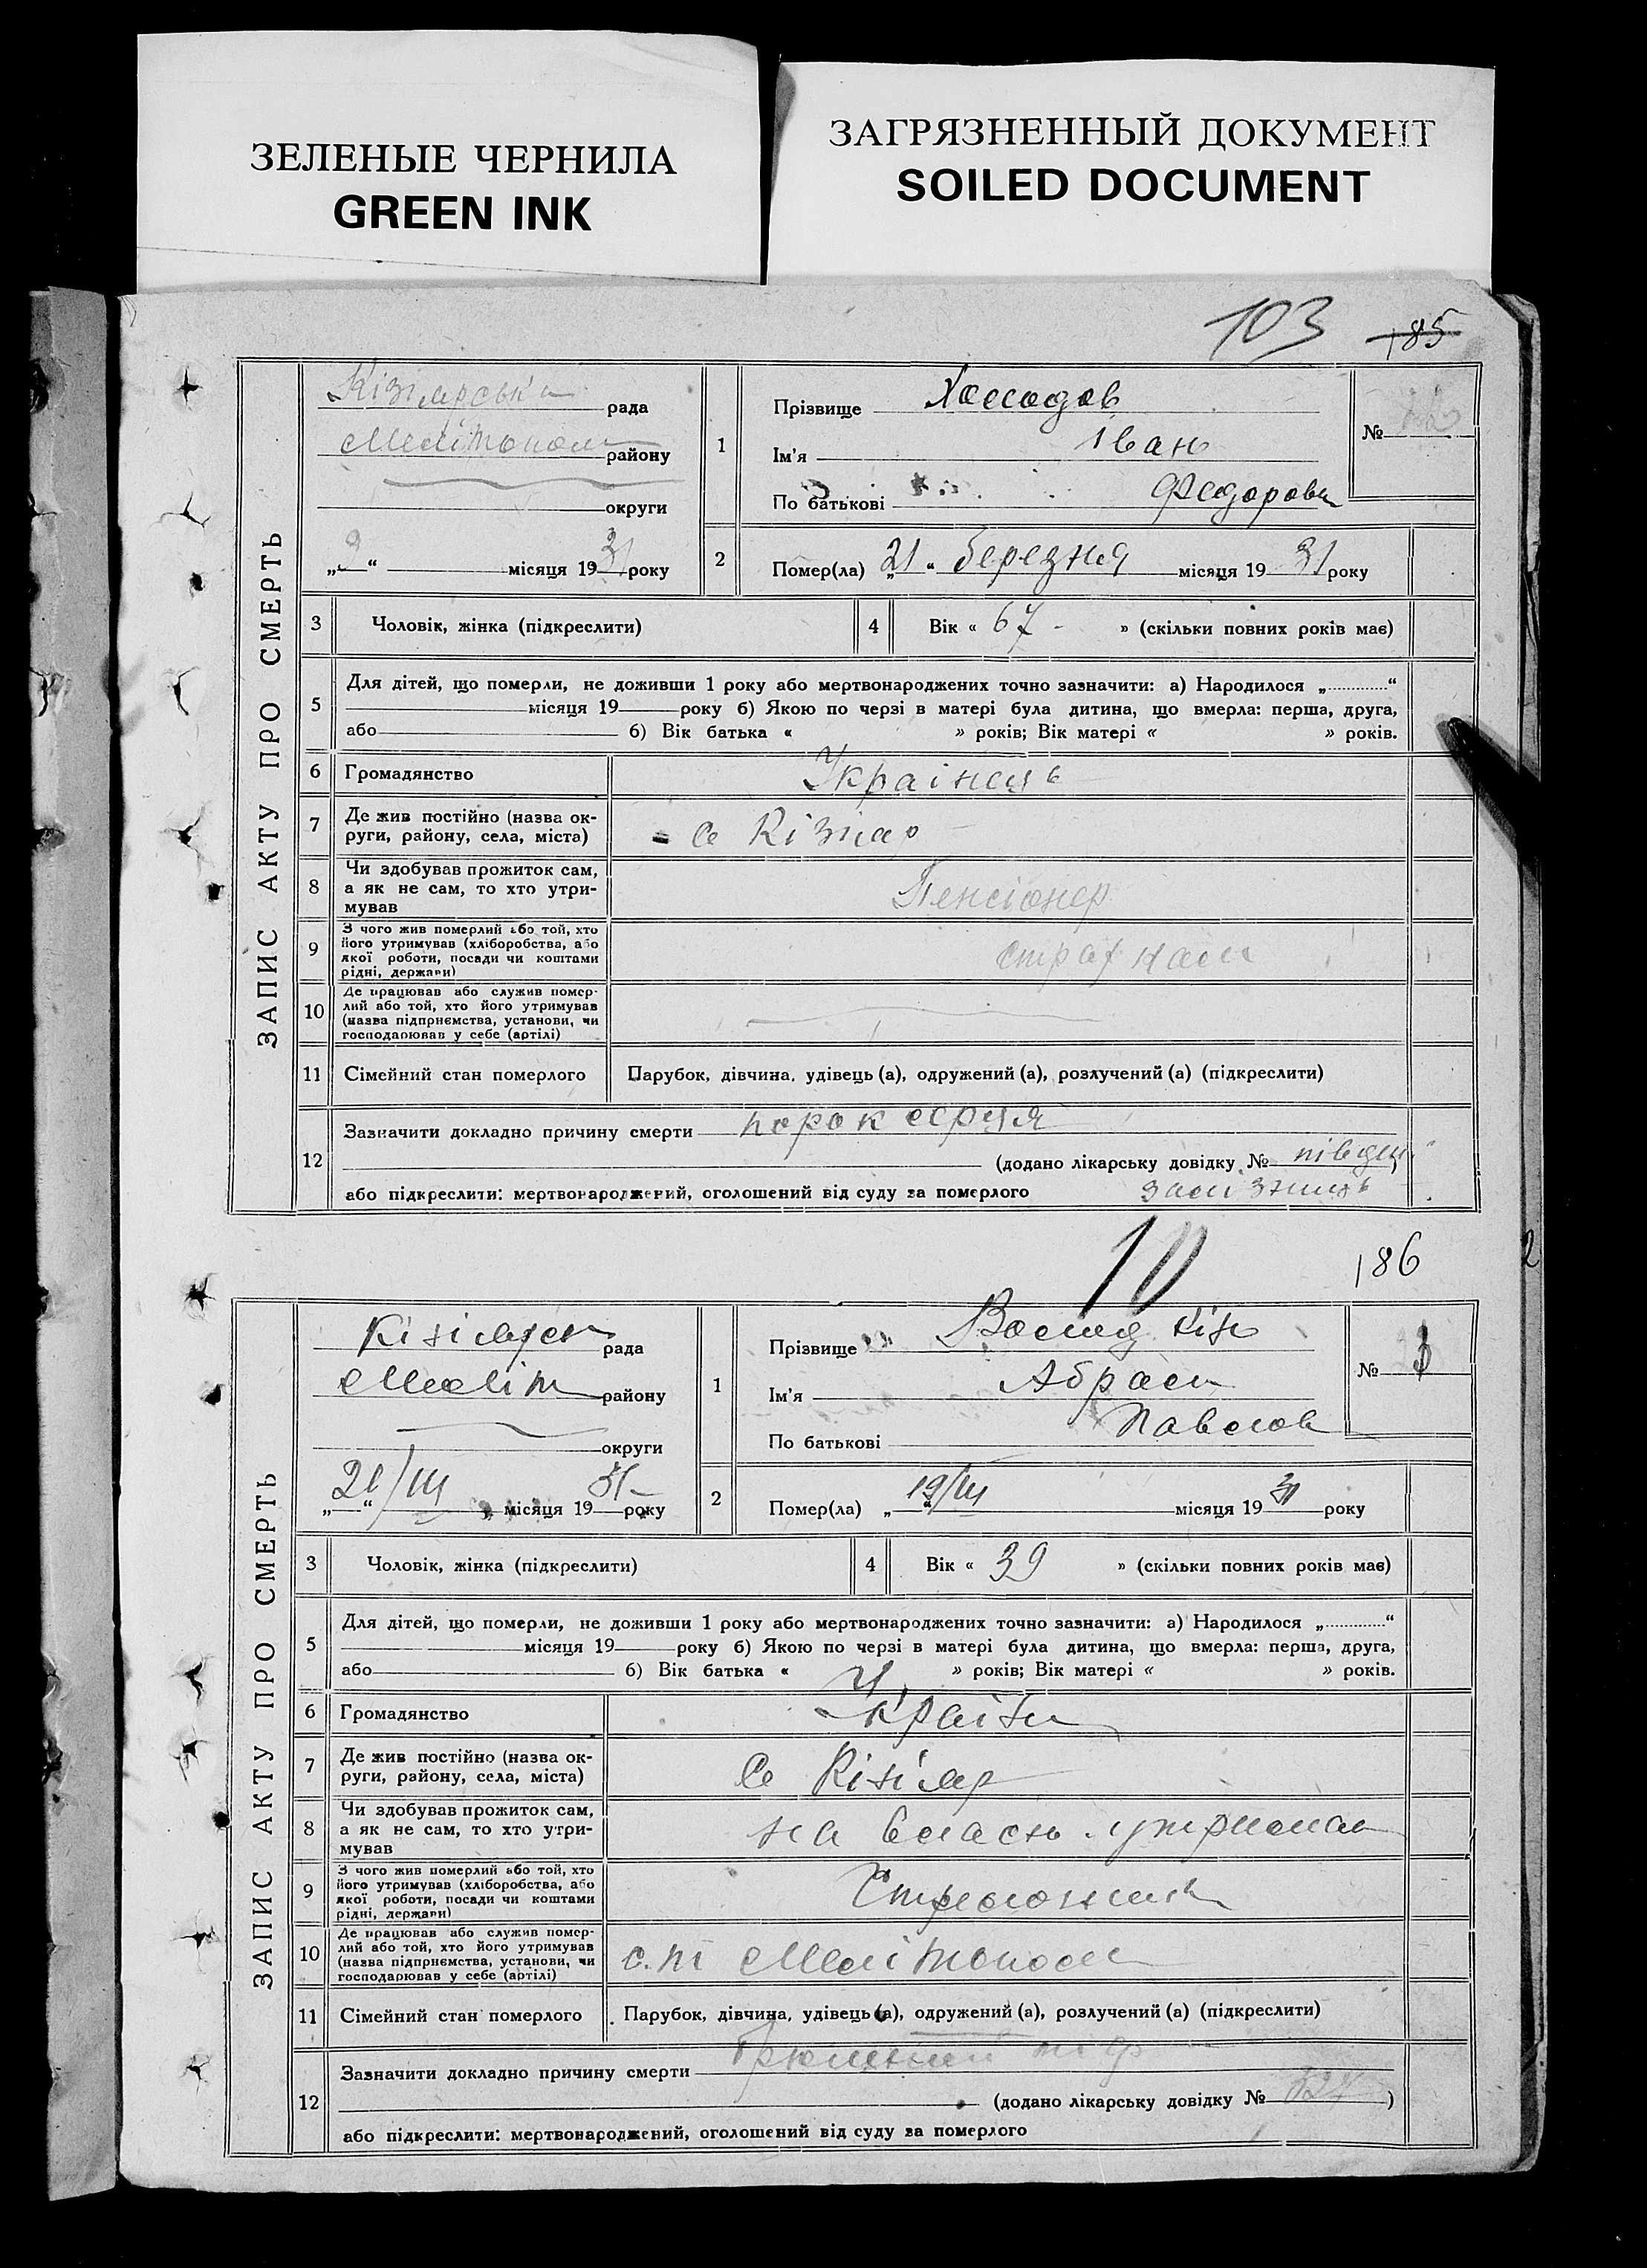 ЗЕЛЕНЫЕ ЧЕРНИЛА
GREEN INK
ЗАГРЯЗНЕННЫЙ ДОКУМЕНТ
SOILED DOCUMENT
103 185
ЗАПИС АКТУ ПРО СМЕРТЬ
Кізіярська рада
Мелітопол району
округи
„ “ місяця 1931 року
1
Прізвище
Ім'я Іван
По батькові Федоров
№
2
Помер(ла) „21“ березня місяця 1931 року
3 Чоловік, жінка (підкреслити)
4 Вік « 67 - » (скільки повних років має)
5
Для дітей, що померли, не доживши 1 року або мертвонароджених точно зазначити: а) Народилося „ “
місяця 19 року б) Якою по черзі в матері була дитина, що вмерла: перша, друга,
або б) Вік батька « » років; Вік матері « » років.
6 Громадянство Українець
7 Де жив постійно (назва ок-
руги, району, села, міста) с Кізіяр
8 Чи здобував прожиток сам,
а як не сам, то хто утри-
мував Пенсіонер
9 З чого жив померлий або той, хто
його утримував (хліборобства, або
якої роботи, посади чи коштами
рідні, держави)
10 Де працював або служив помер-
лий або той, хто його утримував
(назва підприємства, установи, чи
господарював у себе (артілі)
11 Сімейний стан померлого Парубок, дівчина, удівець (а), одружений (а), розлучений (а) (підкреслити)
12
Зазначити докладно причину смерти порок серця
(додано лікарську довідку №
або підкреслити: мертвонароджений, оголошений від суду за померлого
10 186
ЗАПИС АКТУ ПРО СМЕРТЬ
Кізіярськ рада
Меліт району
округи
„21/III“ місяця 1931 року
1
Прізвище
Ім'я Абрам
По батькові Павлов
№
2
Помер(ла) „19/III“ місяця 1931 року
3 Чоловік, жінка (підкреслити)
4 Вік « 39 » (скільки повних років має)
5
Для дітей, що померли, не доживши 1 року або мертвонароджених точно зазначити: а) Народилося „ “
місяця 19 року б) Якою по черзі в матері була дитина, що вмерла: перша, друга,
або б) Вік батька « » років; Вік матері « » років.
6 Громадянство Україн
7 Де жив постійно (назва ок-
руги, району, села, міста) с Кізіяр
8 Чи здобував прожиток сам,
а як не сам, то хто утри-
мував на власн. утриман
9 З чого жив померлий або той, хто
його утримував (хліборобства, або
якої роботи, посади чи коштами
рідні, держави)
10 Де працював або служив помер-
лий або той, хто його утримував
(назва підприємства, установи, чи
господарював у себе (артілі) с.т Мелітополь
11 Сімейний стан померлого Парубок, дівчина, удівець (а), одружений (а), розлучений (а) (підкреслити)
12
Зазначити докладно причину смерти тиф
(додано лікарську довідку № )
або підкреслити: мертвонароджений, оголошений від суду за померлого